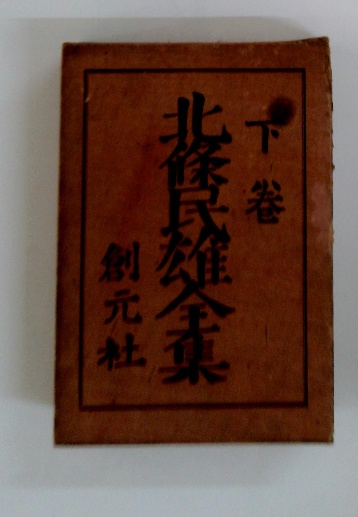 下卷
北條民雄全集
創元社